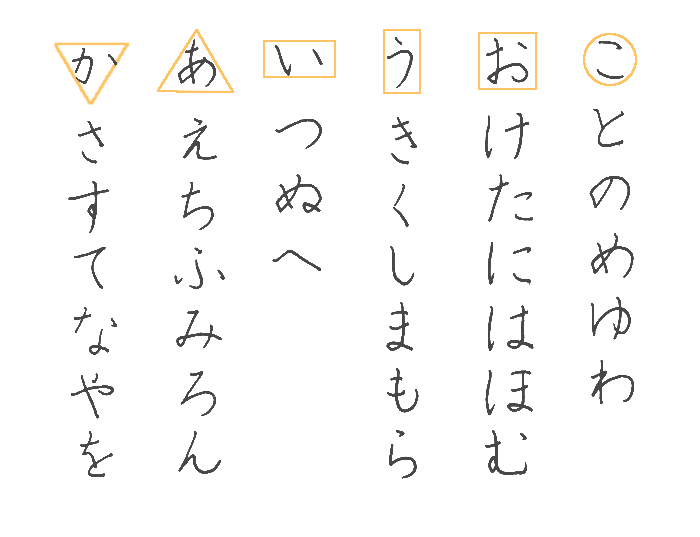 ことのめゆわ
おけたにはほむ
うきくしまもら
いつぬへ
あえちふみろん
かさすてなやを